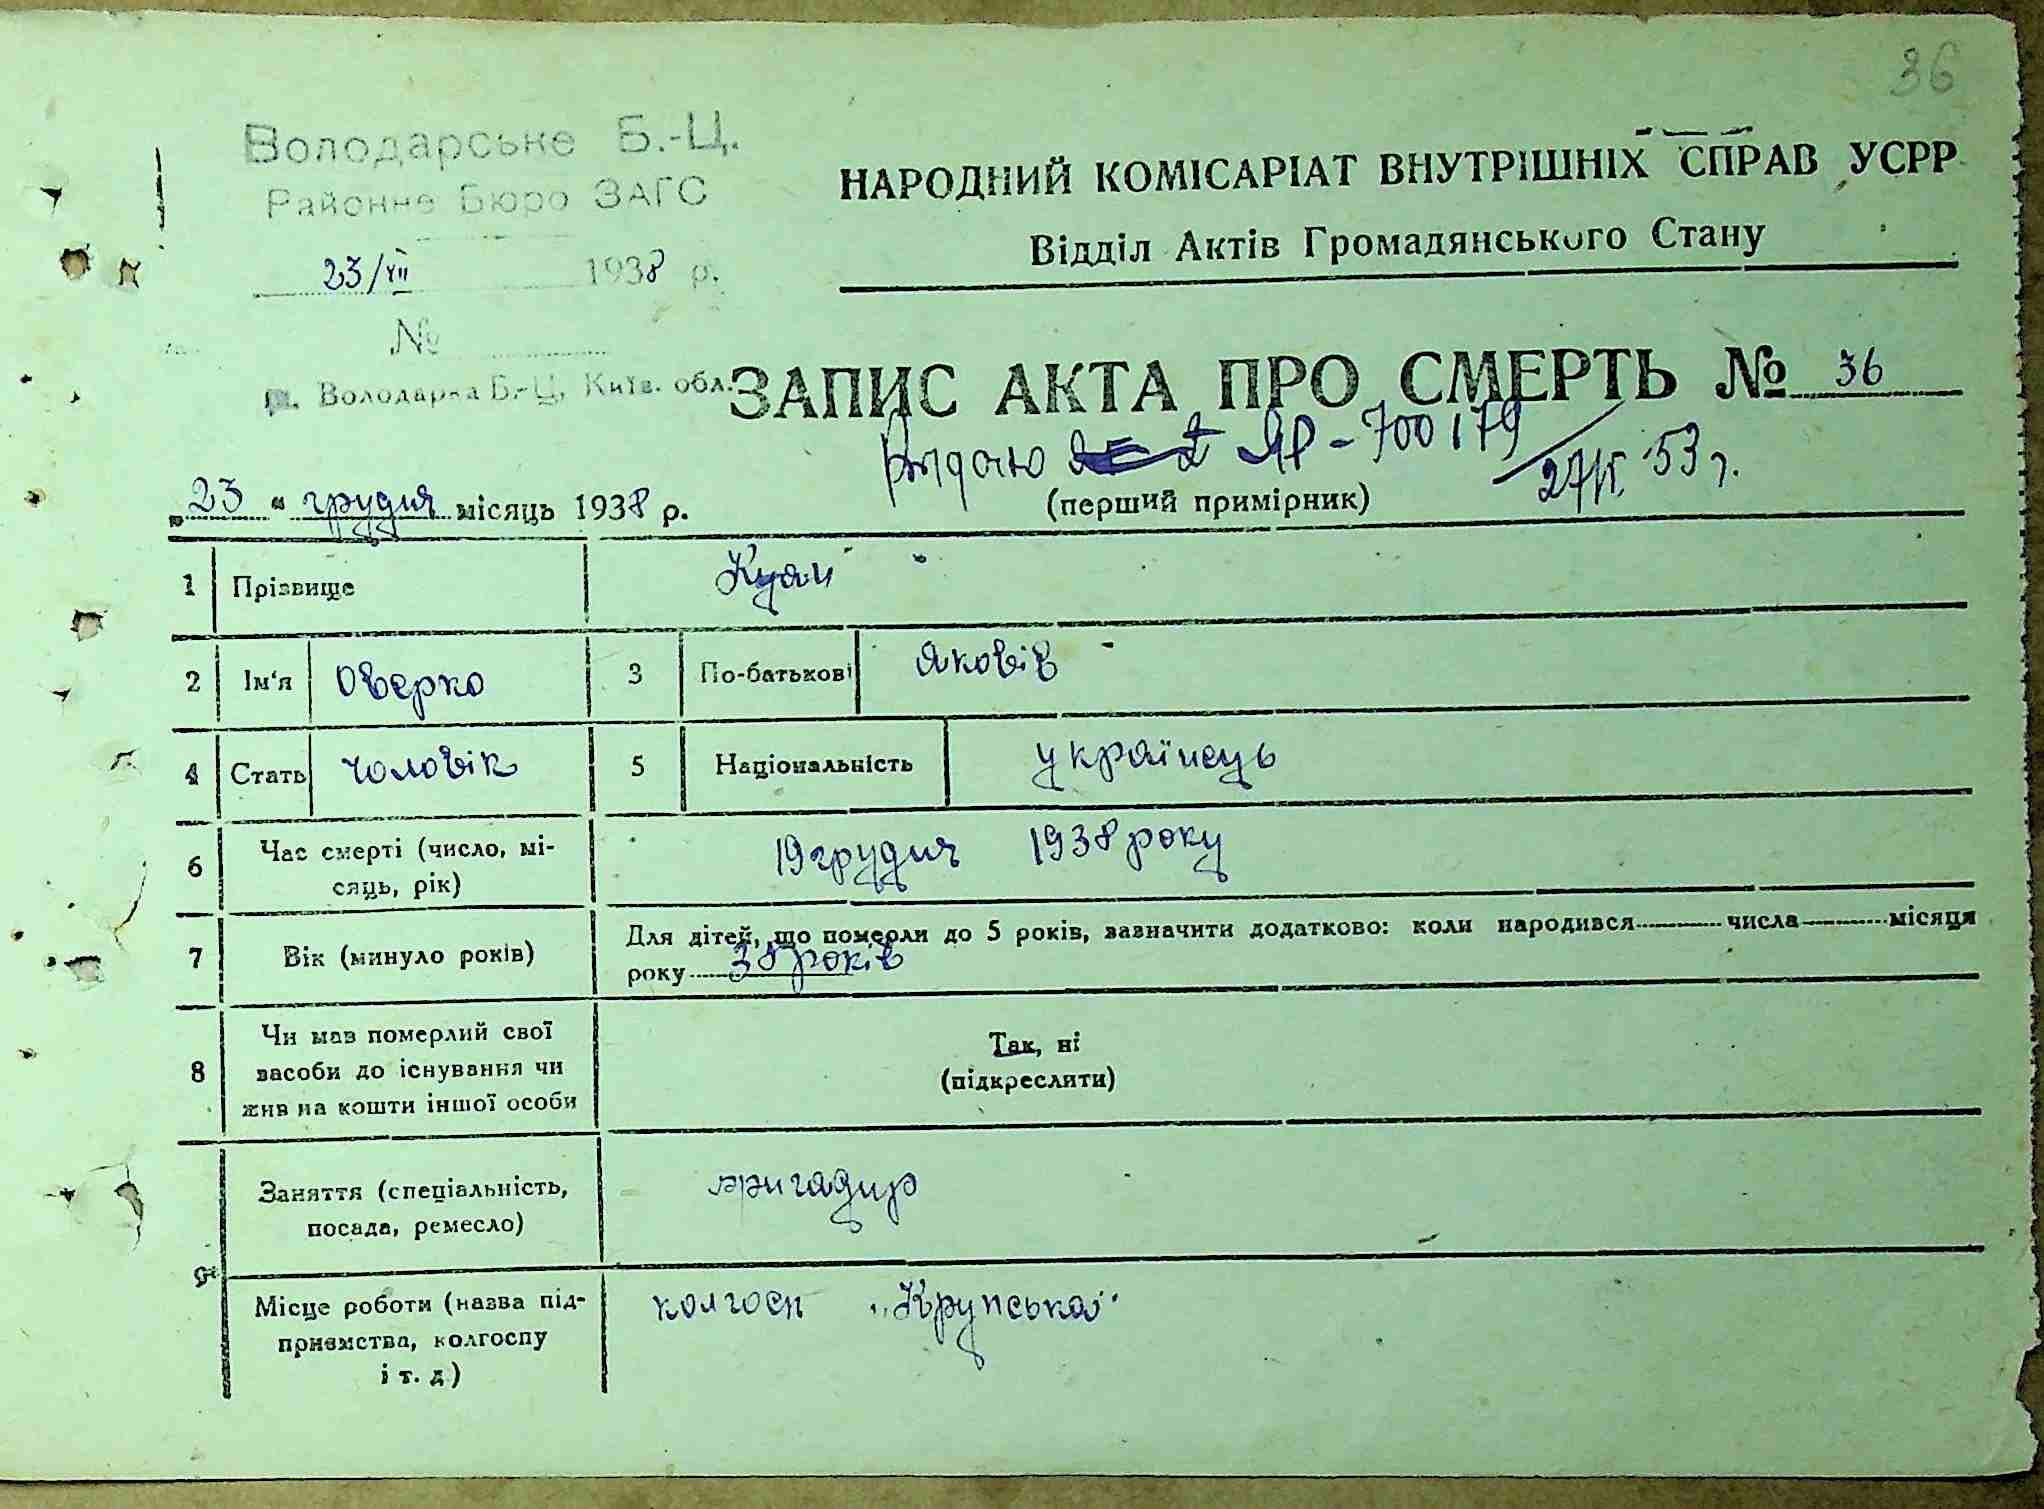 36
Володарське Б.-Ц.
Районне Бюро ЗАГС
23/XII 1938 р.
№
Володарка Б.-Ц, Київ. обл.
НАРОДНИЙ КОМІСАРІАТ ВНУТРІШНІХ СПРАВ УСРР
Відділ Актів Громадянського Стану
ЗАПИС АКТА ПРО СМЕРТЬ № 36
ЯР-700179
53 г.
(перший примірник)
„23“ грудня місяць 1938 р.
1 Прізвище
2 Ім‘я Оверко 3 По-батькові Яковів
4 Стать чоловік 5 Національність українець
6 Час смерті (число, мі-
сяць, рік) 19 грудня 1938 року
7 Вік (минуло років) Для дітей, що померли до 5 років, зазначити додатково: коли народився числа місяця
року 38 років
8 Чи мав померлий свої
засоби до існування чи
жив на кошти іншої особи
Так, ні
(підкреслити)
9 Заняття (спеціальність,
посада, ремесло) бригадир
Місце роботи (назва під-
приємства, колгоспу
і т. д) колгосп „Крупська"